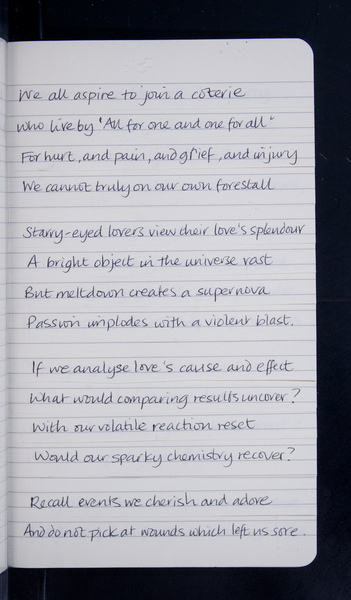 We all aspire to join a coterie
who live by "All for one and one for all"
For hurt, and pain, and grief, and injury
We cannot truly on our own forestall
Starry-eyed lovers view their love's splendour
A bright object in the universe vast
But meltdown creates a supernova
Passion implodes with a violent blast.
If we analyse love's cause and effect
What would comparing results uncover?
With our volatile reaction reset
Would our sparky chemistry recover?
Recall events we cherish and adore
And do not pick at wounds which left us sore.